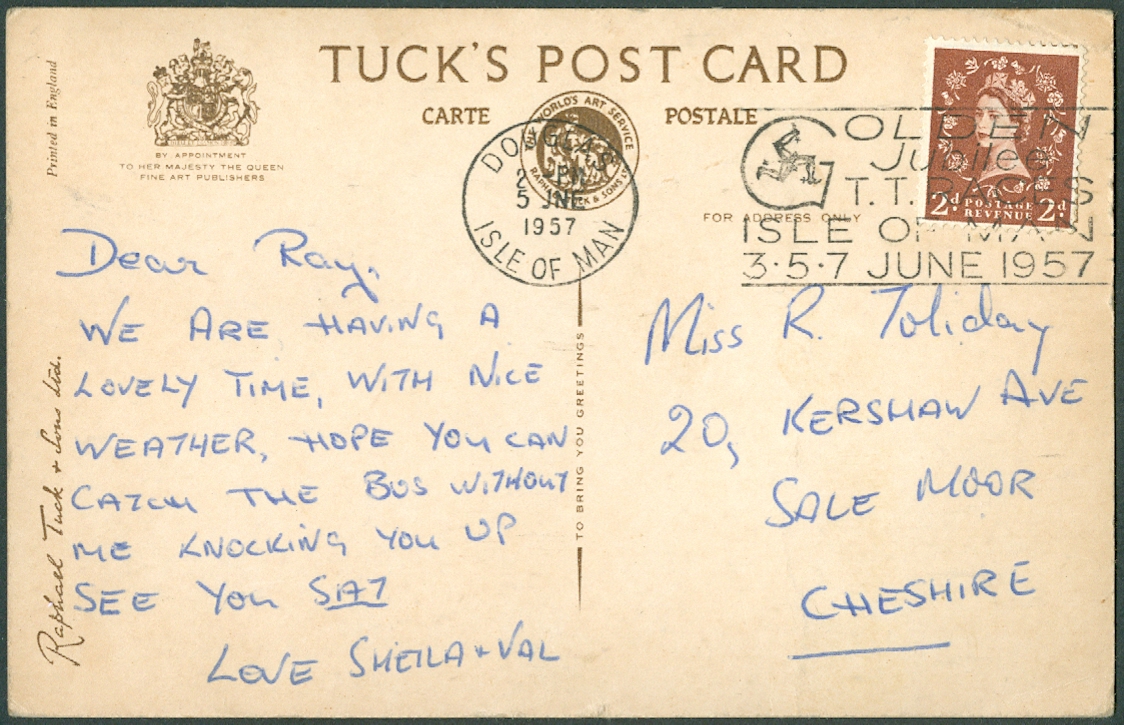 TUCK'S POST CARD
CARTE POSTALE
Printed in England
BY APPOINTMENT
TO HER MAJESTY THE QUEEN
FINE ART PUBLISHERS
THE WORLD'S ART SERVICE
RAPHAEL TUCK & SONS LTD
DOUGLAS
PM
5 JNE
1957
ISLE OF MAN
GOLDEN
Jubilee
T.T. RACES
ISLE OF MAN
3·5·7 JUNE 1957
2d POSTAGE REVENUE 2d
FOR ADDRESS ONLY
Dear Ray,
WE ARE HAVING A
LOVELY TIME, WITH NICE
WEATHER, HOPE YOU CAN
CATCH THE BUS WITHOUT
ME KNOCKING YOU UP
SEE YOU SAT
LOVE SHEILA + VAL
Raphael Tuck & Sons Ltd.
TO BRING YOU GREETINGS
Miss R. Toliday
20, KERSHAW AVE
SALE MOOR
CHESHIRE